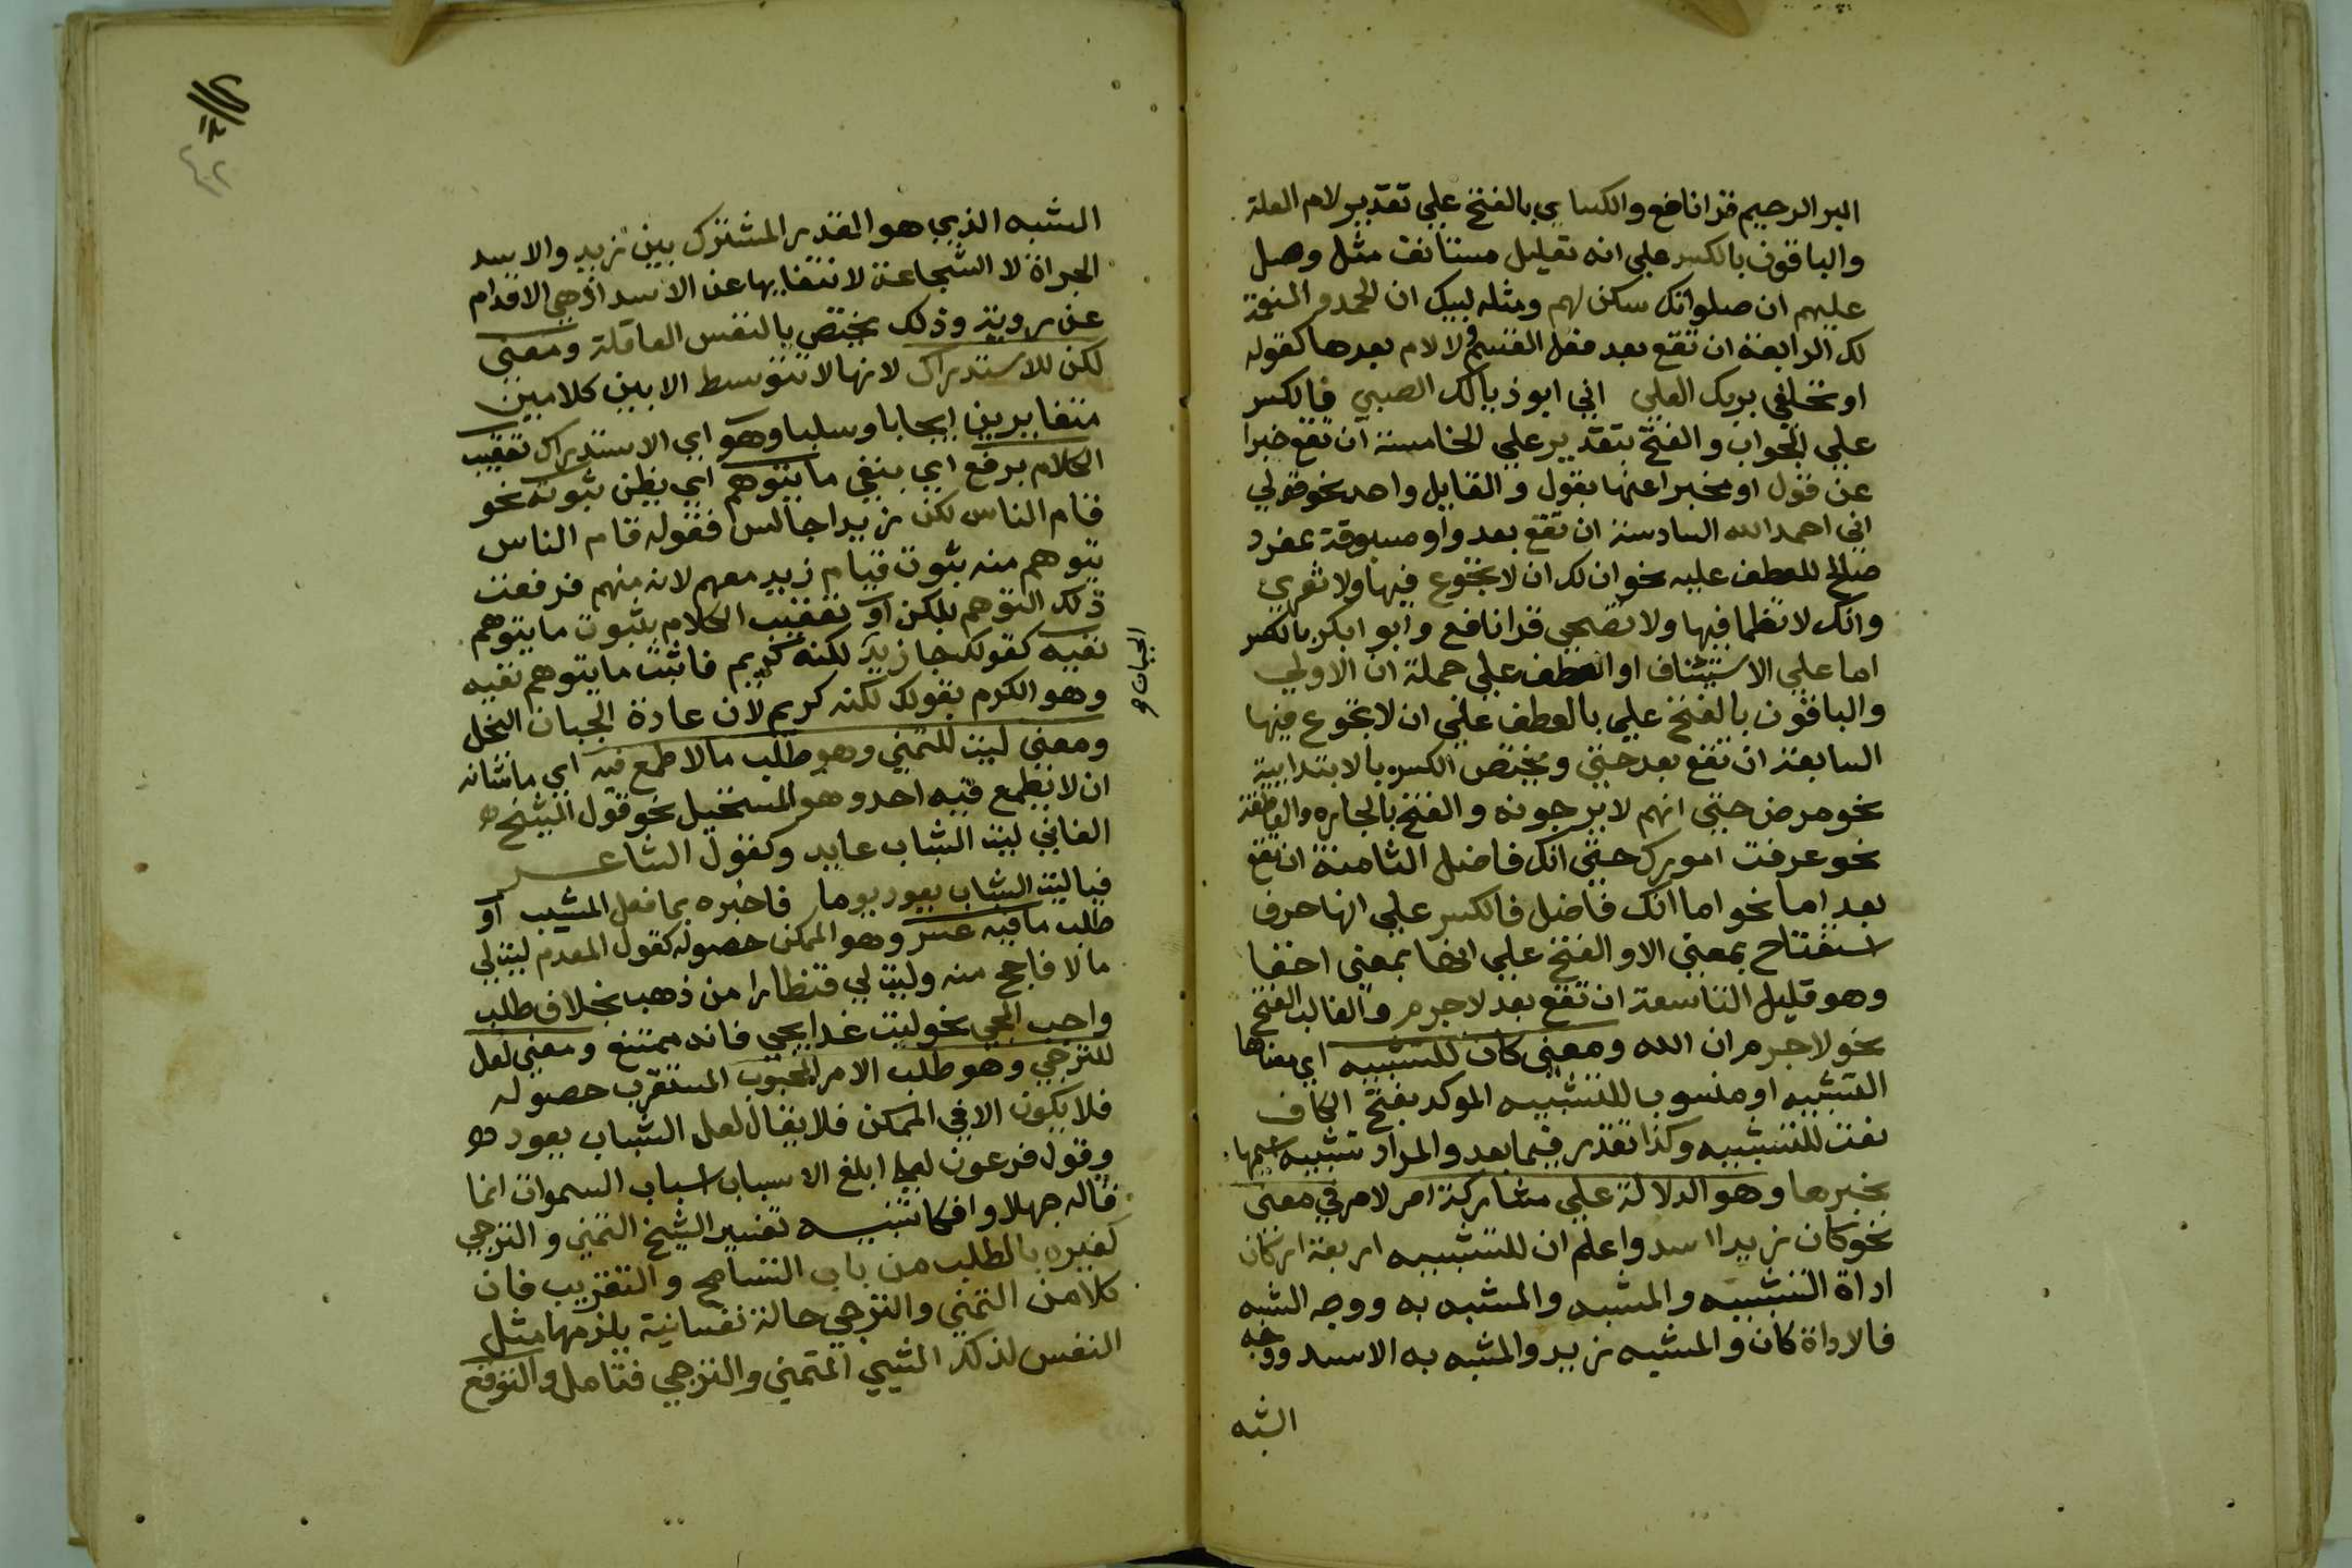 البر الرحيم قرا نافع والكساي بالفتح علي تقدير لام العلة
والباقون بالكسر علي انه تعليل مستانف مثل وصل
عليهم ان صلواتك سكن لهم ومثله لبيك ان الحمد والنعمة
لك الرابعة ان تقع بعد فعل القسم ولا لام بعدها كقوله
او تحلفي بربك العلي اني ابو ذيالك الصبي فالكسر
علي الجواب والفتح بتقدير علي الخامسة ان تقع خبرا
عن قول او مخبرا عنها بقول والقايل واحد نحو قولي
اني احمد الله السادسة ان تقع بعد واو مسبوقة بمفرد
صالح للعطف عليه نحو ان لك ان لا تجوع فيها ولا تعري
وانك لا تظما فيها ولا تضحي قرا نافع وابو ابكر بالكسر
اما علي الاستئناف او العطف علي جملة ان الاولي
والباقون بالفتح علي بالعطف علي ان لا تجوع فيها
السابعة ان تقع بعد حتي ويختص الكسر بالابتدايية
نحو مرض حتي انهم لا يرجونه والفتح بالجاره والعاطفة
نحو عرفت امورك حتي انك فاضل الثامنة ان تقع
بعد اما نحو اما انك فاضل فالكسر علي انها حرف
استفتاح بمعني الا والفتح علي انها بمعني احقا
وهو قليل التاسعة ان تقع بعد لا جرم والغالب الفتح
نحو لا جرم ان الله ومعني كان للتشبيه اي معناها
التشبيه او منسوب للتشبيه الموكد بفتح الكاف
نعت للتشبيه وكذا تقدر فيما بعد والمراد تشبيه اسمها
بخبرها وهو الدلالة علي مشاركة امر لامر في معني
نحو كان زيدا اسد واعلم ان للتشبيه اربعة اركان
اداة التشبيه والمشبه والمشبه به ووجه الشبه
فالاداة كان والمشبه زيد والمشبه به الاسد ووجه
الشبه
الشبه الذي هو القدر المشترك بين زيد والاسد
الجراة لا الشجاعة لانتفايها عن الاسد اذ هي الاقدام
عن روية وذلك يختص بالنفس العاقلة ومعني
لكن للاستدراك لانها لا تتوسط الا بين كلامين
متغايرين ايجابا وسلبا وهو اي الاستدراك تعقيب
الكلام برفع اي بنفي ما يتوهم اي يظن ثبوته نحو
قام الناس لكن زيدا جالس فقوله قام الناس
يتوهم منه ثبوت قيام زيد معهم لانه منهم فرفعت
ذلك التوهم بلكن او تعقيب الكلام بثبوت ما يتوهم
نفيه كقولك جا زيد لكنه كريم فاثبت ما يتوهم نفيه
الجبان و
وهو الكرم بقولك لكنه كريم لان عادة الجبان البخل
ومعني ليت للتمني وهو طلب ما لا طمع فيه اي ما شانه
ان لا يطمع فيه احد وهو المستحيل نحو قول الشيخ
الفاني ليت الشباب عايد وكقول الشاعر
فيا ليت الشباب يعود يوما فاخبره بما فعل المشيب او
طلب ما فيه عسر وهو الممكن حصوله كقول المعدم ليت لي
مالا فاحج منه وليت لي قنطارا من ذهب بخلاف طلب
واجب المجي نحو ليت غدا يجي فانه ممتنع ومعني لعل
للترجي وهو طلب الامر المحبوب المستقرب حصوله
فلا يكون الا في الممكن فلا يقال لعل الشباب يعود
وقول فرعون لعلي ابلغ الاسباب اسباب السموات انما
قاله جهلا وافكا تنبيه تفسير الشيخ التمني والترجي
كغيره بالطلب من باب التسامح والتقريب فان
كلا من التمني والترجي حالة نفسانية يلزمها مثل
النفس لذلك الشيي المتمني والترجي فتامل والتوقع